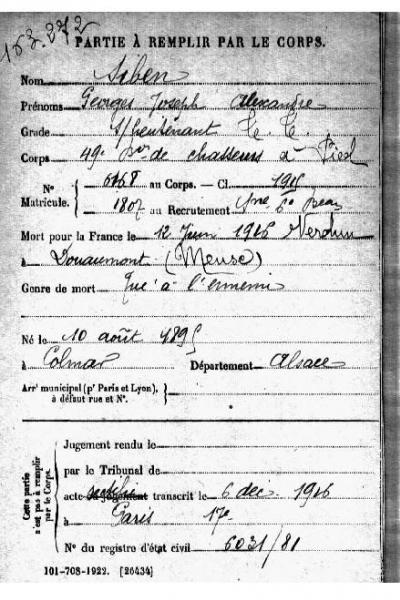 153.272
PARTIE À REMPLIR PAR LE CORPS.
Nom Siben
Prénoms Georges Joseph Alexandre
Grade S/lieutenant
Corps 49e Bon de chasseurs à Pied
N° Matricule. 6168 au Corps. — Cl. 1915
1807 au Recrutement Sne 6e Beau
Mort pour la France le 12 Juin 1916 Verdun
à Douaumont (Meuse)
Genre de mort Tué à l'ennemi
Né le 10 août 1895
à Colmar Département Alsace
Arrt municipal (pr Paris et Lyon),
à défaut rue et N°.
Cette partie n'est pas à remplir par le Corps.
Jugement rendu le
par le Tribunal de
acte ou jugement transcrit le 6 déc. 1916
à Paris 17e
N° du registre d'état civil 6031/81
101-708-1922. [26434]